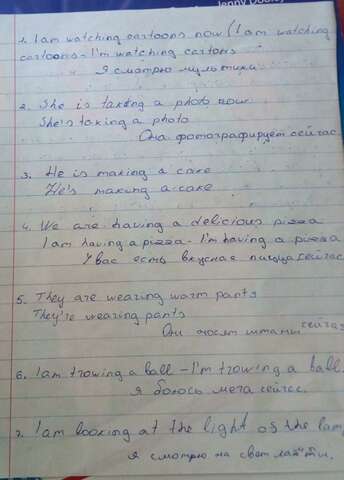 Jenny Dooley
1. I am watching cartoons now (I am watching
cartoons - I'm watching cartons
Я смотрю мультики
2. She is taking a photo now.
She's taking a photo
Она фотографирует сейчас.
3. He is making a cake
He's making a cake
4. We are having a delicious pizza
I am having a pizza - I'm having a pizza
У вас есть вкусная пицца сейчас
5. They are wearing warm pants
They're wearing pants
Они носят штаны сейчас
6. I am trowing a ball - I'm trowing a ball.
я боюсь мяча сейчас.
7. I am looking at the light of the lamp
я смотрю на свет